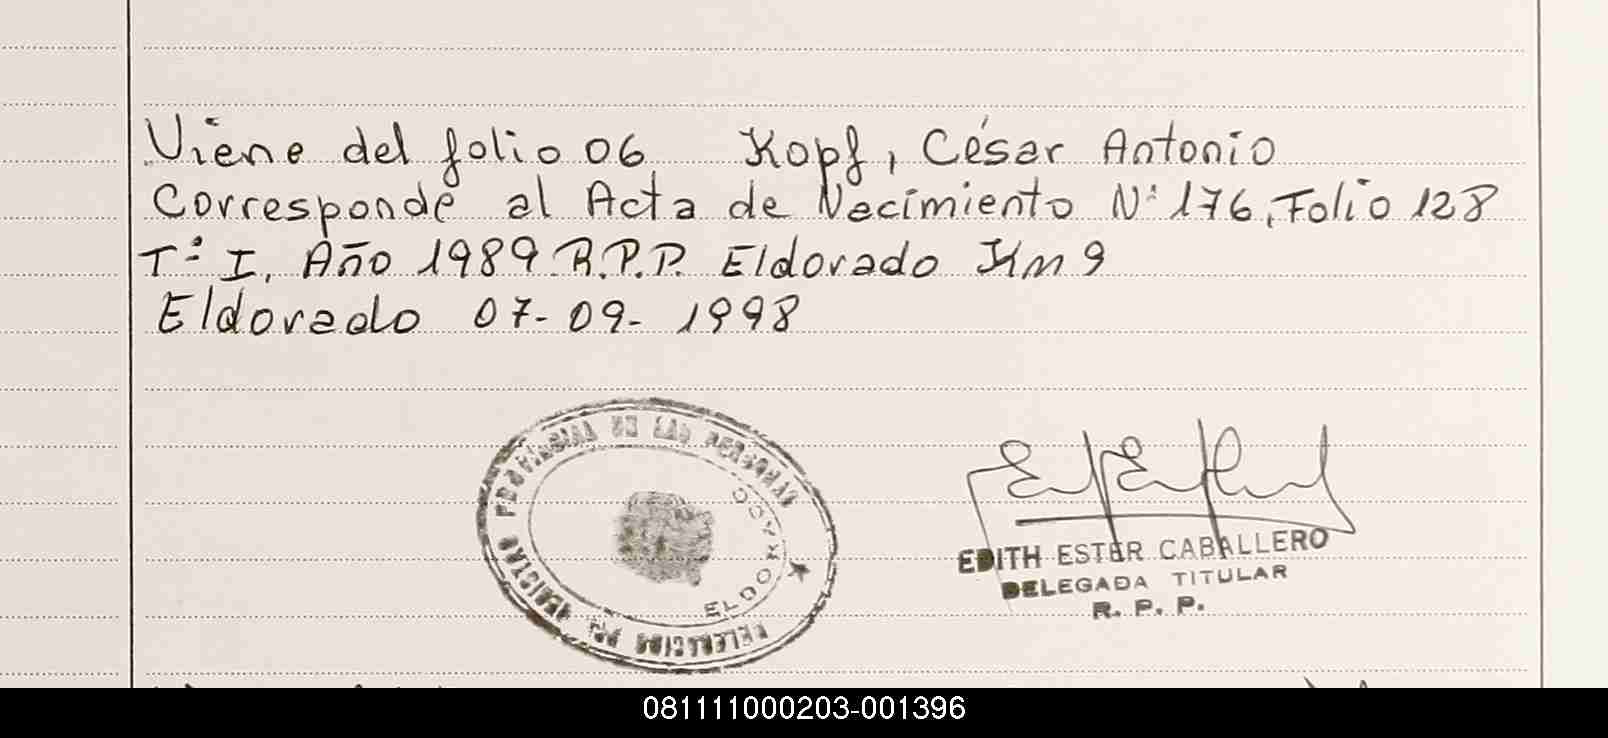 Viene del folio 06 Kopf, César Antonio
Corresponde al Acta de Nacimiento Nº 176, Folio 128
Tº I, Año 1989 R.P.P. Eldorado Km 9
Eldorado 07-09-1998
REGISTRO PROVINCIAL DE LAS PERSONAS
ELDORADO
EDITH ESTER CABALLERO
DELEGADA TITULAR
R. P. P.
081111000203-001396